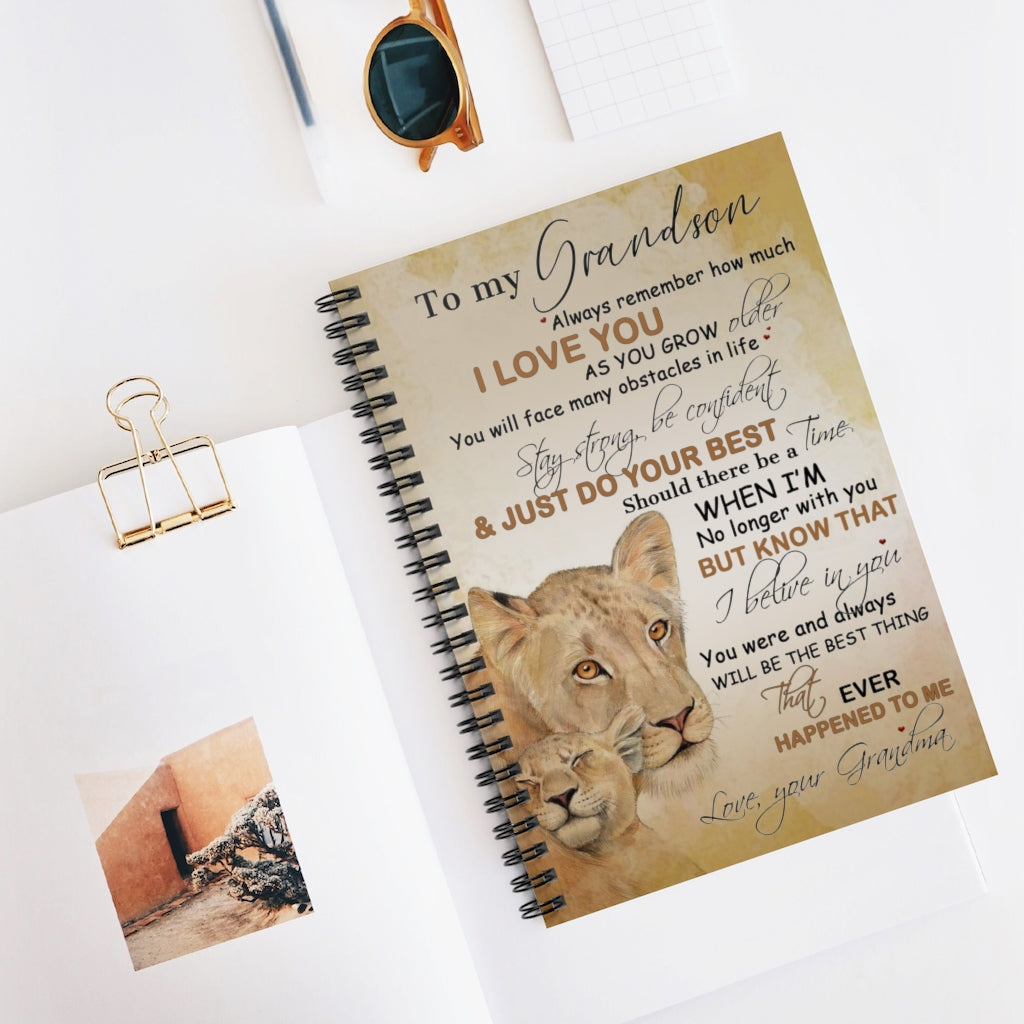 To my Grandson
Always remember how much
I LOVE YOU
AS YOU GROW older
You will face many obstacles in life
Stay strong, be confident
& JUST DO YOUR BEST
Should there be a Time
WHEN I'M
No longer with you
BUT KNOW THAT
I belive in you
You were and always
WILL BE THE BEST THING
That EVER
HAPPENED TO ME
Love, your Grandma